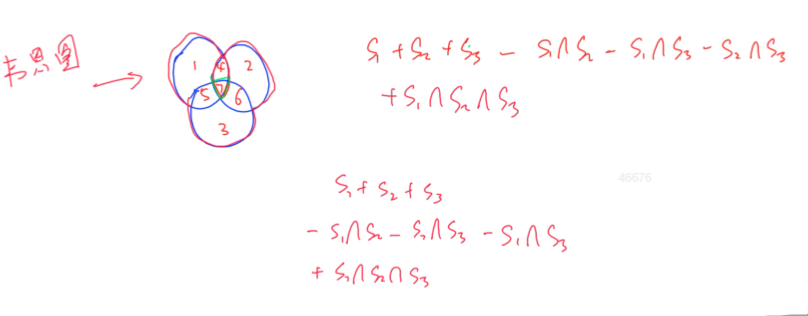 韦恩图
1 4 2
5 7 6
3
S₁ + S₂ + S₃ - S₁∩S₂ - S₁∩S₃ - S₂∩S₃
+ S₁∩S₂∩S₃
46676
S₁ + S₂ + S₃
- S₁∩S₂ - S₂∩S₃ - S₁∩S₃
+ S₁∩S₂∩S₃